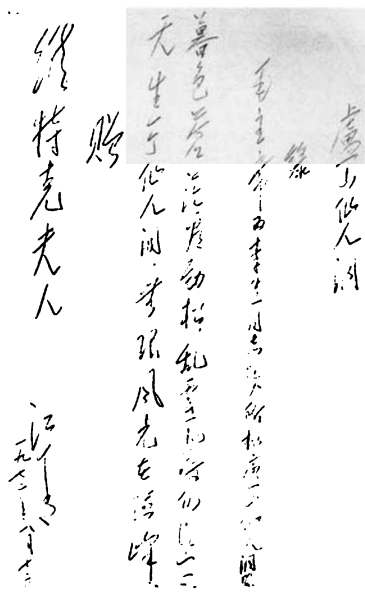 庐山仙人洞
录
毛主席为李进同志题所摄庐山仙人洞照
暮色苍茫看劲松，乱云飞渡仍从容。
天生一个仙人洞，无限风光在险峰。
赠
维特克夫人
江青
一九七二年八月十二日